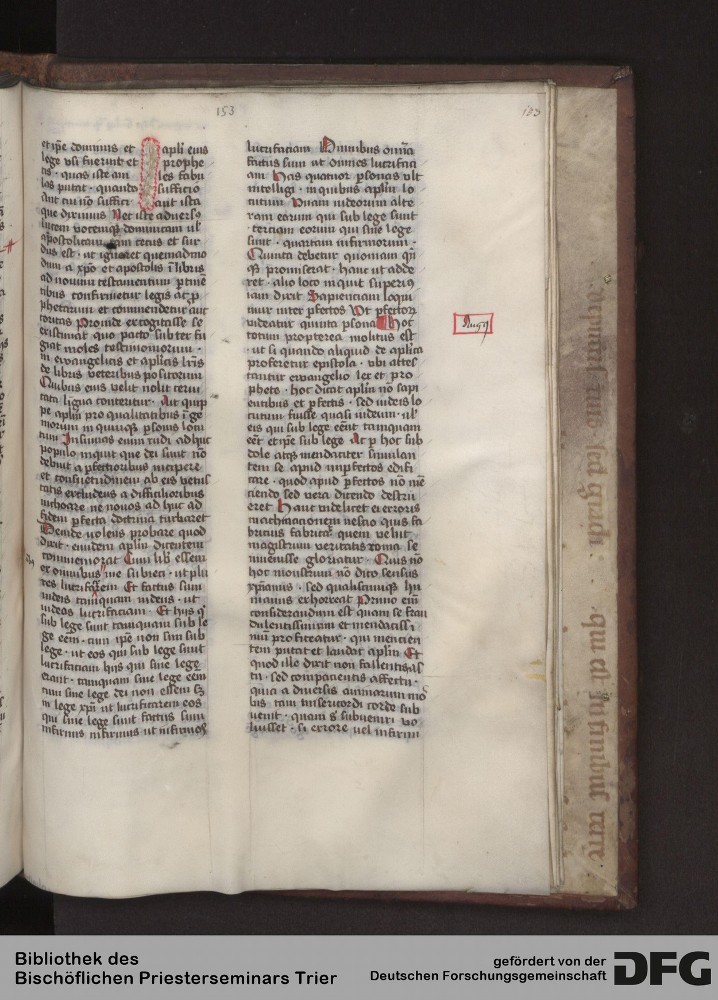 153
153
et ip̄e dominus et apl̄i eius
lege vsi fuerint et prophe
tis · quas iste am les fabu
las putat · quando sufficio
ant ista
que diximus Nec iste aduers
lucem vocemq̄ dominicam ul̓
apostolicam tam cecus et sur
dus est · ut ignoret quemadmo
dum a xp̄o et apostolis ī libris
ad nouum testamentum ptinē
tibus confirmetur legis ac p
phetarum et commendetur auc
toritas Proinde excogitasse se
existimat quo pacto subterfu
giat moles testimoniorum ·
in ewangelicis et apl̄icis l̄ris
de libris veteribus positorum
Quibus eius velit nolit ceruī
cata ligna conteretur · Ait quip
pe apl̄m pro qualitatibus ī ge
morum in quinq̄ p̄sonis locu
tum
populo inquit que dei sunt nō
debuit a p̄fectioribus incipere
et consuetudinem ab eis veni
tatis excludens a difficilioribus
inchoare ne nouos ad huc ad
fidem p̄fecta doctrina turbaret
Deinde volens probare quod
dixit · eundem apl̄m dicentem
commemorat Cum lib̄ essem
ex omnibus me subieci · ut plu
res lucrifacerem Et factus sum
iudeis tamquam iudeus · ut
iudeos lucrifaciam · Et hijs q̄
sub lege sunt tamquam sub le
ge eēm · cum ip̄e non sim sub
lege · ut eos qui sub lege sunt
lucrifaciam hijs qui sine lege
erant · tamquam sine lege eēm
cum sine lege dei non essem s̄
in lege xp̄i ut lucrifacerem eos
qui sine lege sunt factus sum
infirmis infirmus ut infirmos
lucrifaciam Omnibus omnia
factus sum ut omnes lucrifaci
am Has quatuor p̄sonas vlt
intelligi · in quibus apl̄m lo
cutum Vnam iudeorum alte
ram eorum qui sub lege sunt
· terciam eorum qui sine lege
sunt · quartam infirmorum ·
Quinta debetur quoniam qn̄
q̄ promiserat · hanc ut adde
ret · alio loco inquit superius
iam dixit Sapienciam loqui
mur inter p̄fectos Vt p̄fectoru
videatur quinta p̄sona Hoc
totum propterea molitus est
· ut si quando aliquid de apl̄ica
proferetur epistola · vbi attes
tantur ewangelio lex et pro
phete · hoc dicat apl̄m nō sapi
entibus et p̄fectis · sed iudeis lo
cutum fuisse quasi iudeum · ul̓
eis qui sub lege eēnt tamquam
eēt et ip̄e sub lege Ac p hoc sub
dole atq̄ mendaciter simulan
tem se apud imp̄fectos edifi
care · quod apud p̄fectos nō mē
ciendo sed vera dicendo destru
eret Hanc videlicet ei erroris
machinacionem nescio quis fa
bricus fabricat̓ quem velut
magistrum veritatis roma se
inuenisse gloriatur · Quis nō
hoc monstrum nō dico sensus
xp̄ianus · sed qualiscumq̄ hu
manus exhorreat Primo eīm
considerandum est quam se frau
dulentissimum et mendacissi
mū profiteatur · qui mencien
tem putat et laudat apl̄m Et
quod ille dixit non fallentis as
tu · sed compacientis affectu ·
quia a diuersis animorum mo
bis tam misericordi corde sub
uenit · quam s̄ subueniri vo
luisset · si errore uel infirmi
Bibliothek des
Bischöflichen Priesterseminars Trier
gefördert von der
Deutschen Forschungsgemeinschaft
DFG